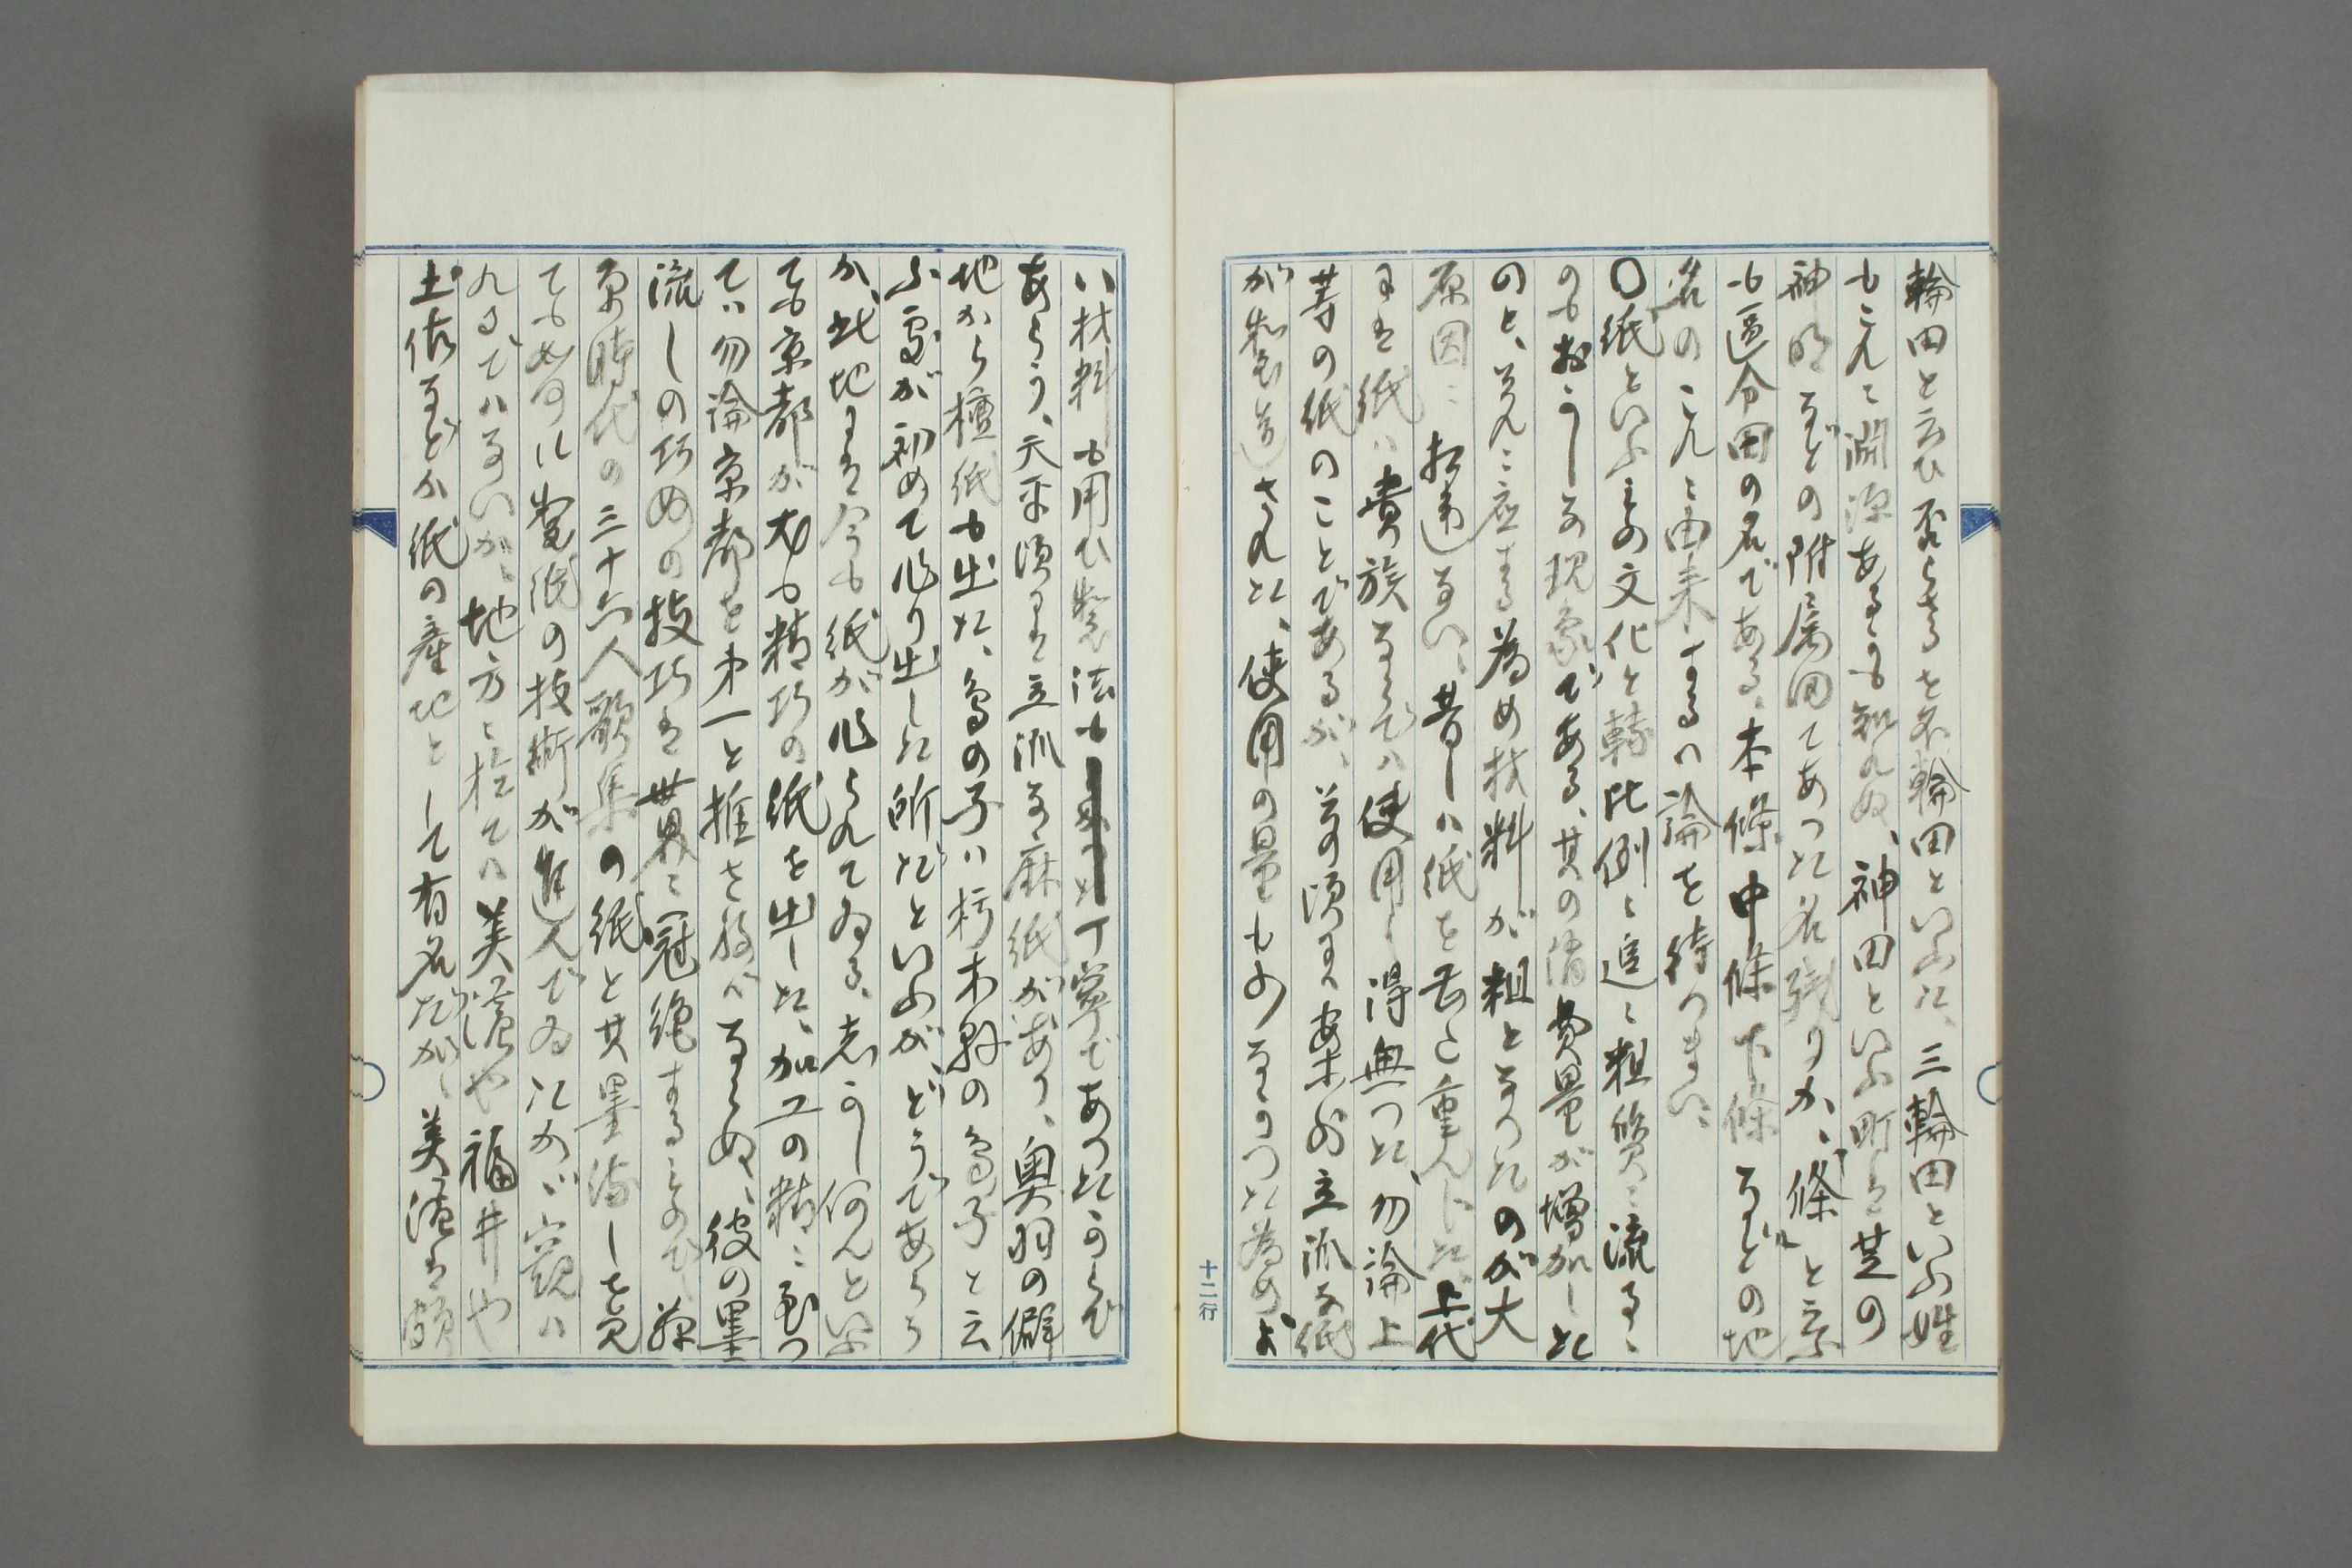 輪田と云ひ否らざるを不輪田といふた、三輪田といふ姓
もこれに淵源あるかも知れぬ、神田といふ町も芝の
神明などの附属田であつた名残りか、條と云ふ
も區分田の名である、本條中條下條などの地
名のこれに由来するハ論を待つまい、
〇紙といふものゝ文化と轉比例に追々粗質に流るゝ
のもおかしな現象である、其の消費量が増加した
のと、それに應ずる為め材料が粗となつたのが大
原因に相違ない、昔しハ紙を甚だ重んじた、上代
にも紙ハ貴族ならでハ使用し得無つた、勿論上
等の紙のことであるが、其の頃は案外立派な紙
が製造された、使用の量も少なかつた為めよ
ハ材料も用ひ製法も丁寧であつたからで
あらう、天平頃にも立派な麻紙があり、奥羽の僻
地から檀紙も出た、鳥の子ハ栃木縣の烏子と云
ふ處が初めて作り出した所だといふが、どうであらう
か、此地にも今も紙が作られてゐる、志かし何んといふ
ても京都が尤も精巧の紙を出した、加工の精に至つ
てハ勿論京都を第一と推さねバならぬ、彼の墨
流しの巧めの技巧も世界に冠絶するものて、藤
原時代の三十六人歌集の紙と其墨流しを見
ても如何に製紙の技術が進んでゐたかゞ窺ハ
れるでハないか、地方に於てハ美濃や福井や
土佐などか紙の産地として有名だが、美濃も頗
十二行